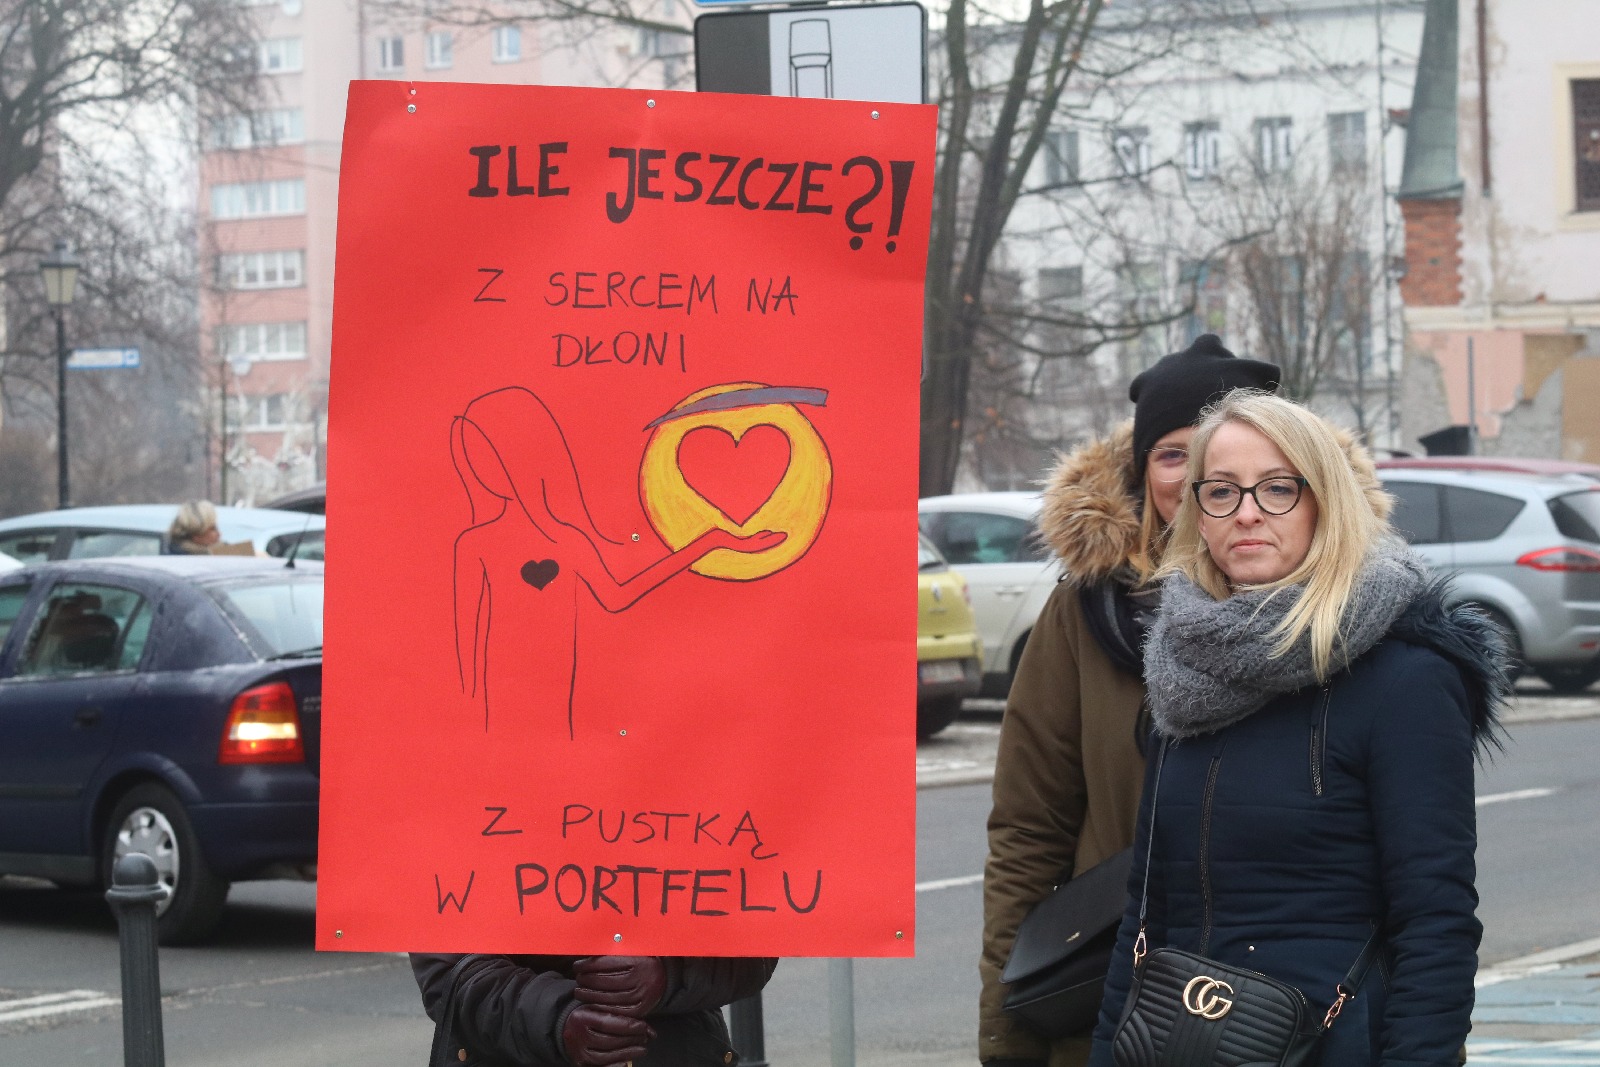 ILE JESZCZE?!
Z SERCEM NA
DŁONI
Z PUSTKĄ
W PORTFELU